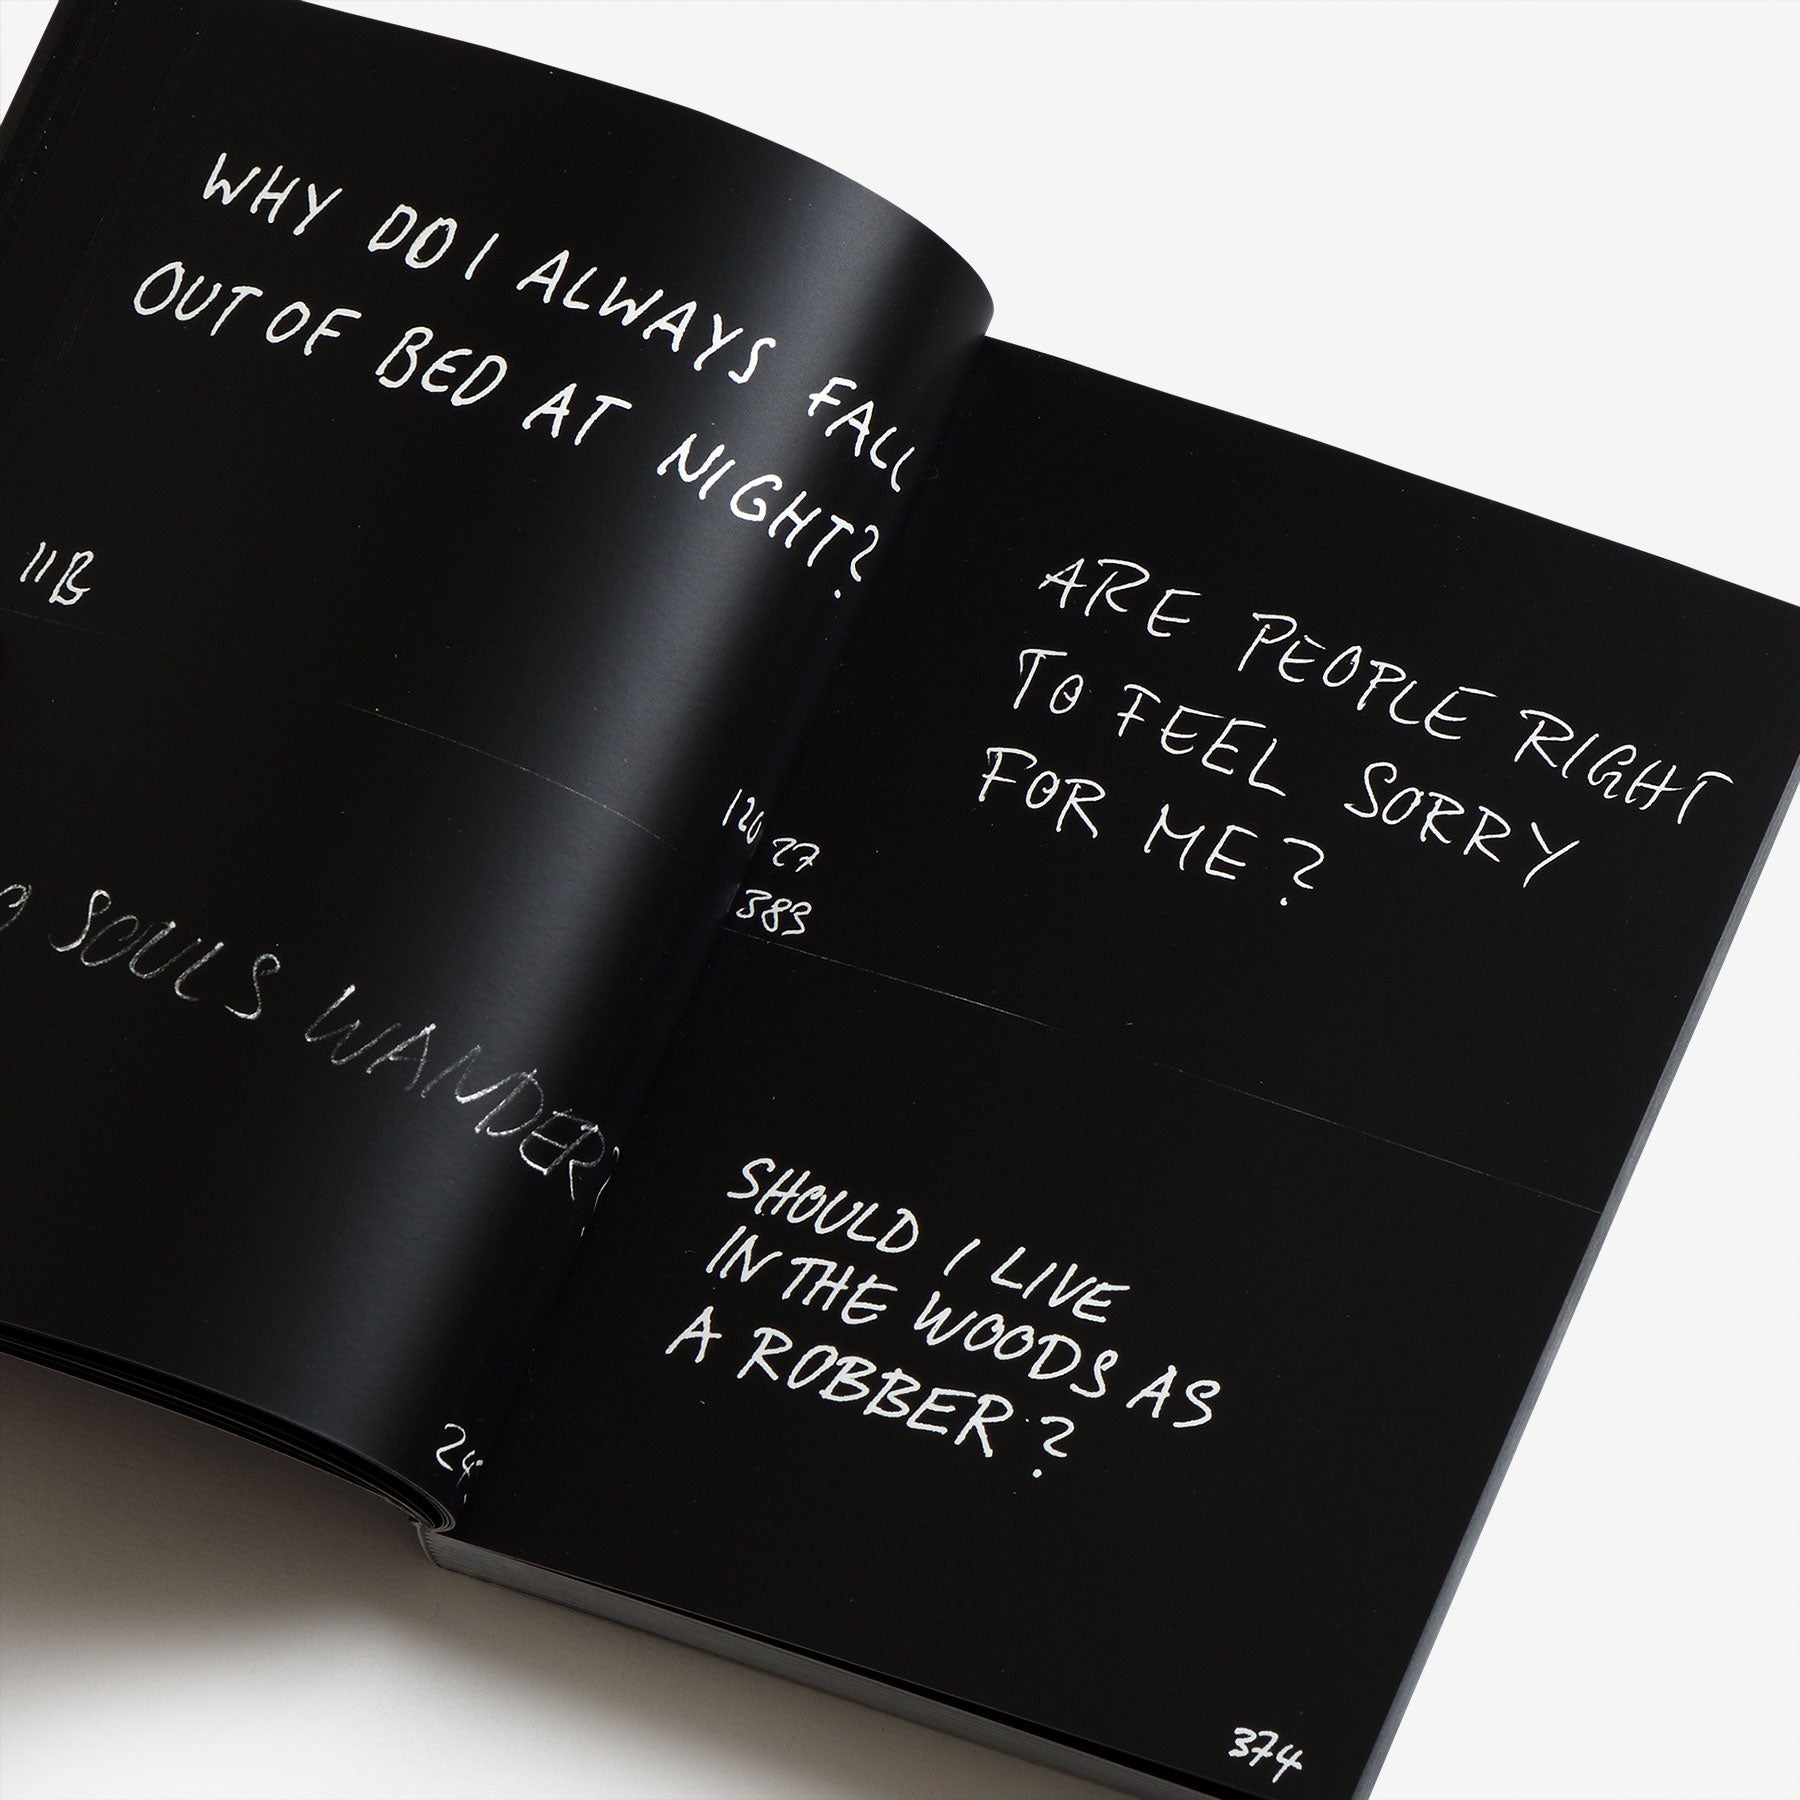 WHY DO I ALWAYS FALL
OUT OF BED AT NIGHT?
11B
120
SOULS WANDER
24
ARE PEOPLE RIGHT
TO FEEL SORRY
FOR ME?
27
383
SHOULD I LIVE
IN THE WOODS AS
A ROBBER?
374